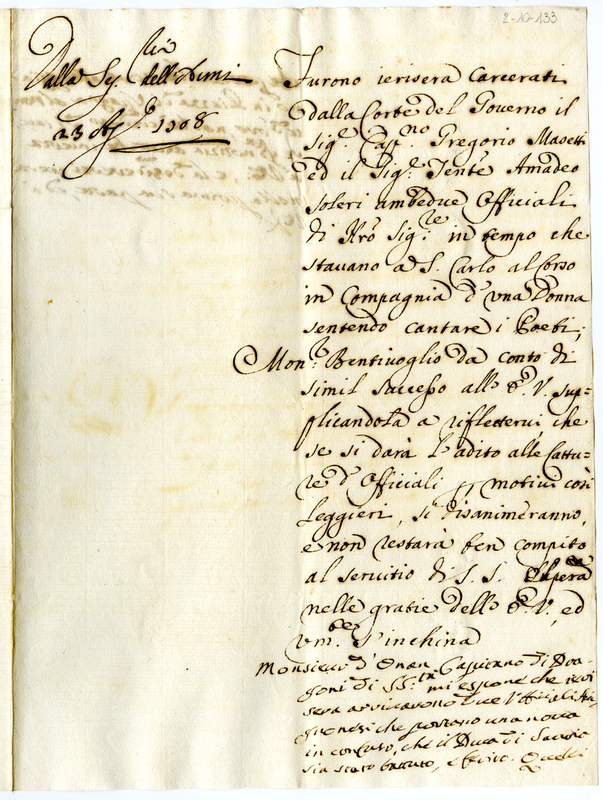 2-10-133
Dalla Seg.ria dell'Armi
23 Ag.o 1708
Furono ierisera Carcerati
dalla Corte del Governo il
Sig.r Cap.no Gregorio Masetti
ed il Sig.r Tent.e Amadeo
Soleri ambedue Officiali
di Nro Sig.re in tempo che
stavano a S. Carlo al Corso
in Compagnia d'una Donna
sentendo cantare i Poeti;
Mon.r Bentivoglio da conto di
simil successo all' E.V. sup=
plicandola a riflettervi, che
se si darà l'adito alle Cattu=
re d'Officiali p motivi così
Leggieri, si disanimeranno,
e non restarà ben compito
al servitio di S. S. Spera
nelle gratie dell' E.V, ed
um.te s'inchina
Monsieur d' Capitano di Dra=
goni di S.S.tà mi espone che ieri
sera arrivarono due Officiali
che portano una nova
in confuso, che il Duca di Savoia
sia stato battuto, e ferito. Quelli